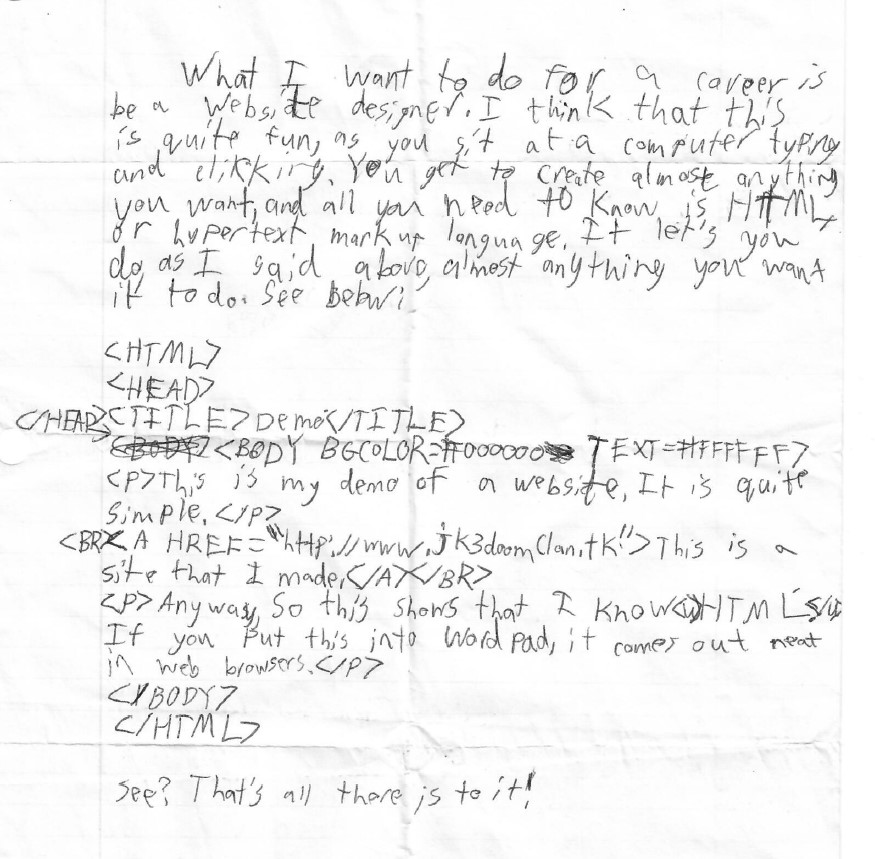 What I want to do for a career is
be a website designer. I think that this
is quite fun, as you sit at a computer typing
and clikking. You get to create almost anything
you want, and all you need to know is HTML,
or hypertext mark up language. It let's you
do, as I said above, almost anything you want
it to do. See below:
<HTML>
<HEAD>
</HEAD> <TITLE> Demo </TITLE>
<BODY> <BODY BGCOLOR=#000000 TEXT=#FFFFFF>
<P>This is my demo of a website. It is quite
simple. </P>
<BR><A HREF="http://www.jk3doomclan.tk!">This is a
site that I made.</A></BR>
<P>Anyway, so this shows that I know<u>HTML</u>
If you put this into Word pad, it comes out neat
in web browsers.</P>
</BODY>
</HTML>
See? That's all there is to it!